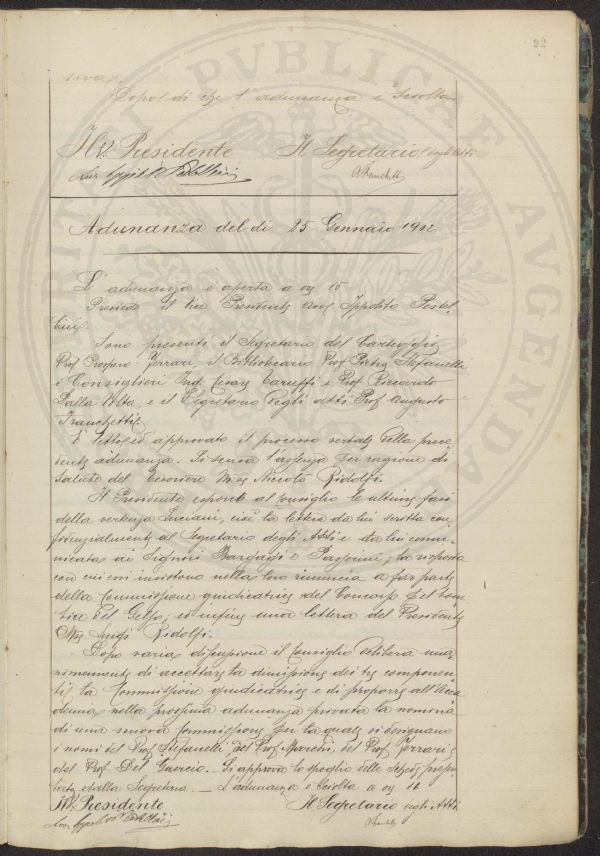 92
siva.
Dopo di che l'adunanza è sciolta.
Il V. Presidente Il Segretario degli Atti
Adunanza del dì 25 Gennaio 1902
L'adunanza è aperta a ore 15
Presiede il Vice Presidente Avv. Ippolito Pestel-
lini.
Sono presenti il Segretario del Carteggio
Prof. Prospero Ferrari, il Bibliotecario Prof. Pietro Stefanelli
i Consiglieri Ing. Cesare Taruffi e Prof. Riccardo
Dalla Volta, e il Segretario degli Atti Prof. Augusto
Franchetti.
È letto ed approvato il processo verbale della prece-
dente adunanza. Si scusa l'assenza per ragione di
salute del Tesoriere Mse Niccolò Ridolfi.
Il Presidente espone al Consiglio le ultime fasi
della vertenza Luciani, cioè la lettera da lui scritta con-
fidenzialmente al Segretario degli Atti e da lui comu-
nicata ai Signori Bargagli e Passerini; la risposta
con cui essi insistono nella loro rinuncia a far parte
della Commissione giudicatrice del Concorso pel
del Gelso; ed infine una lettera del Presidente
Mse Luigi Ridolfi.
Dopo varia discussione il Consiglio delibera una-
nimemente di accettare la dimissione dei tre componen-
ti la Commissione giudicatrice e di proporre all'Acca-
demia nella prossima adunanza privata la nomina
di una nuova Commissione per la quale si designano
i nomi del Prof. Stefanelli del Prof. Marchi, del Prof. Ferrari e
del Prof. Del Guercio. Si approva lo spoglio delle schede presen-
tate dalla Segreteria. — L'adunanza è sciolta a ore 16
Il V. Presidente Il Segretario degli Atti